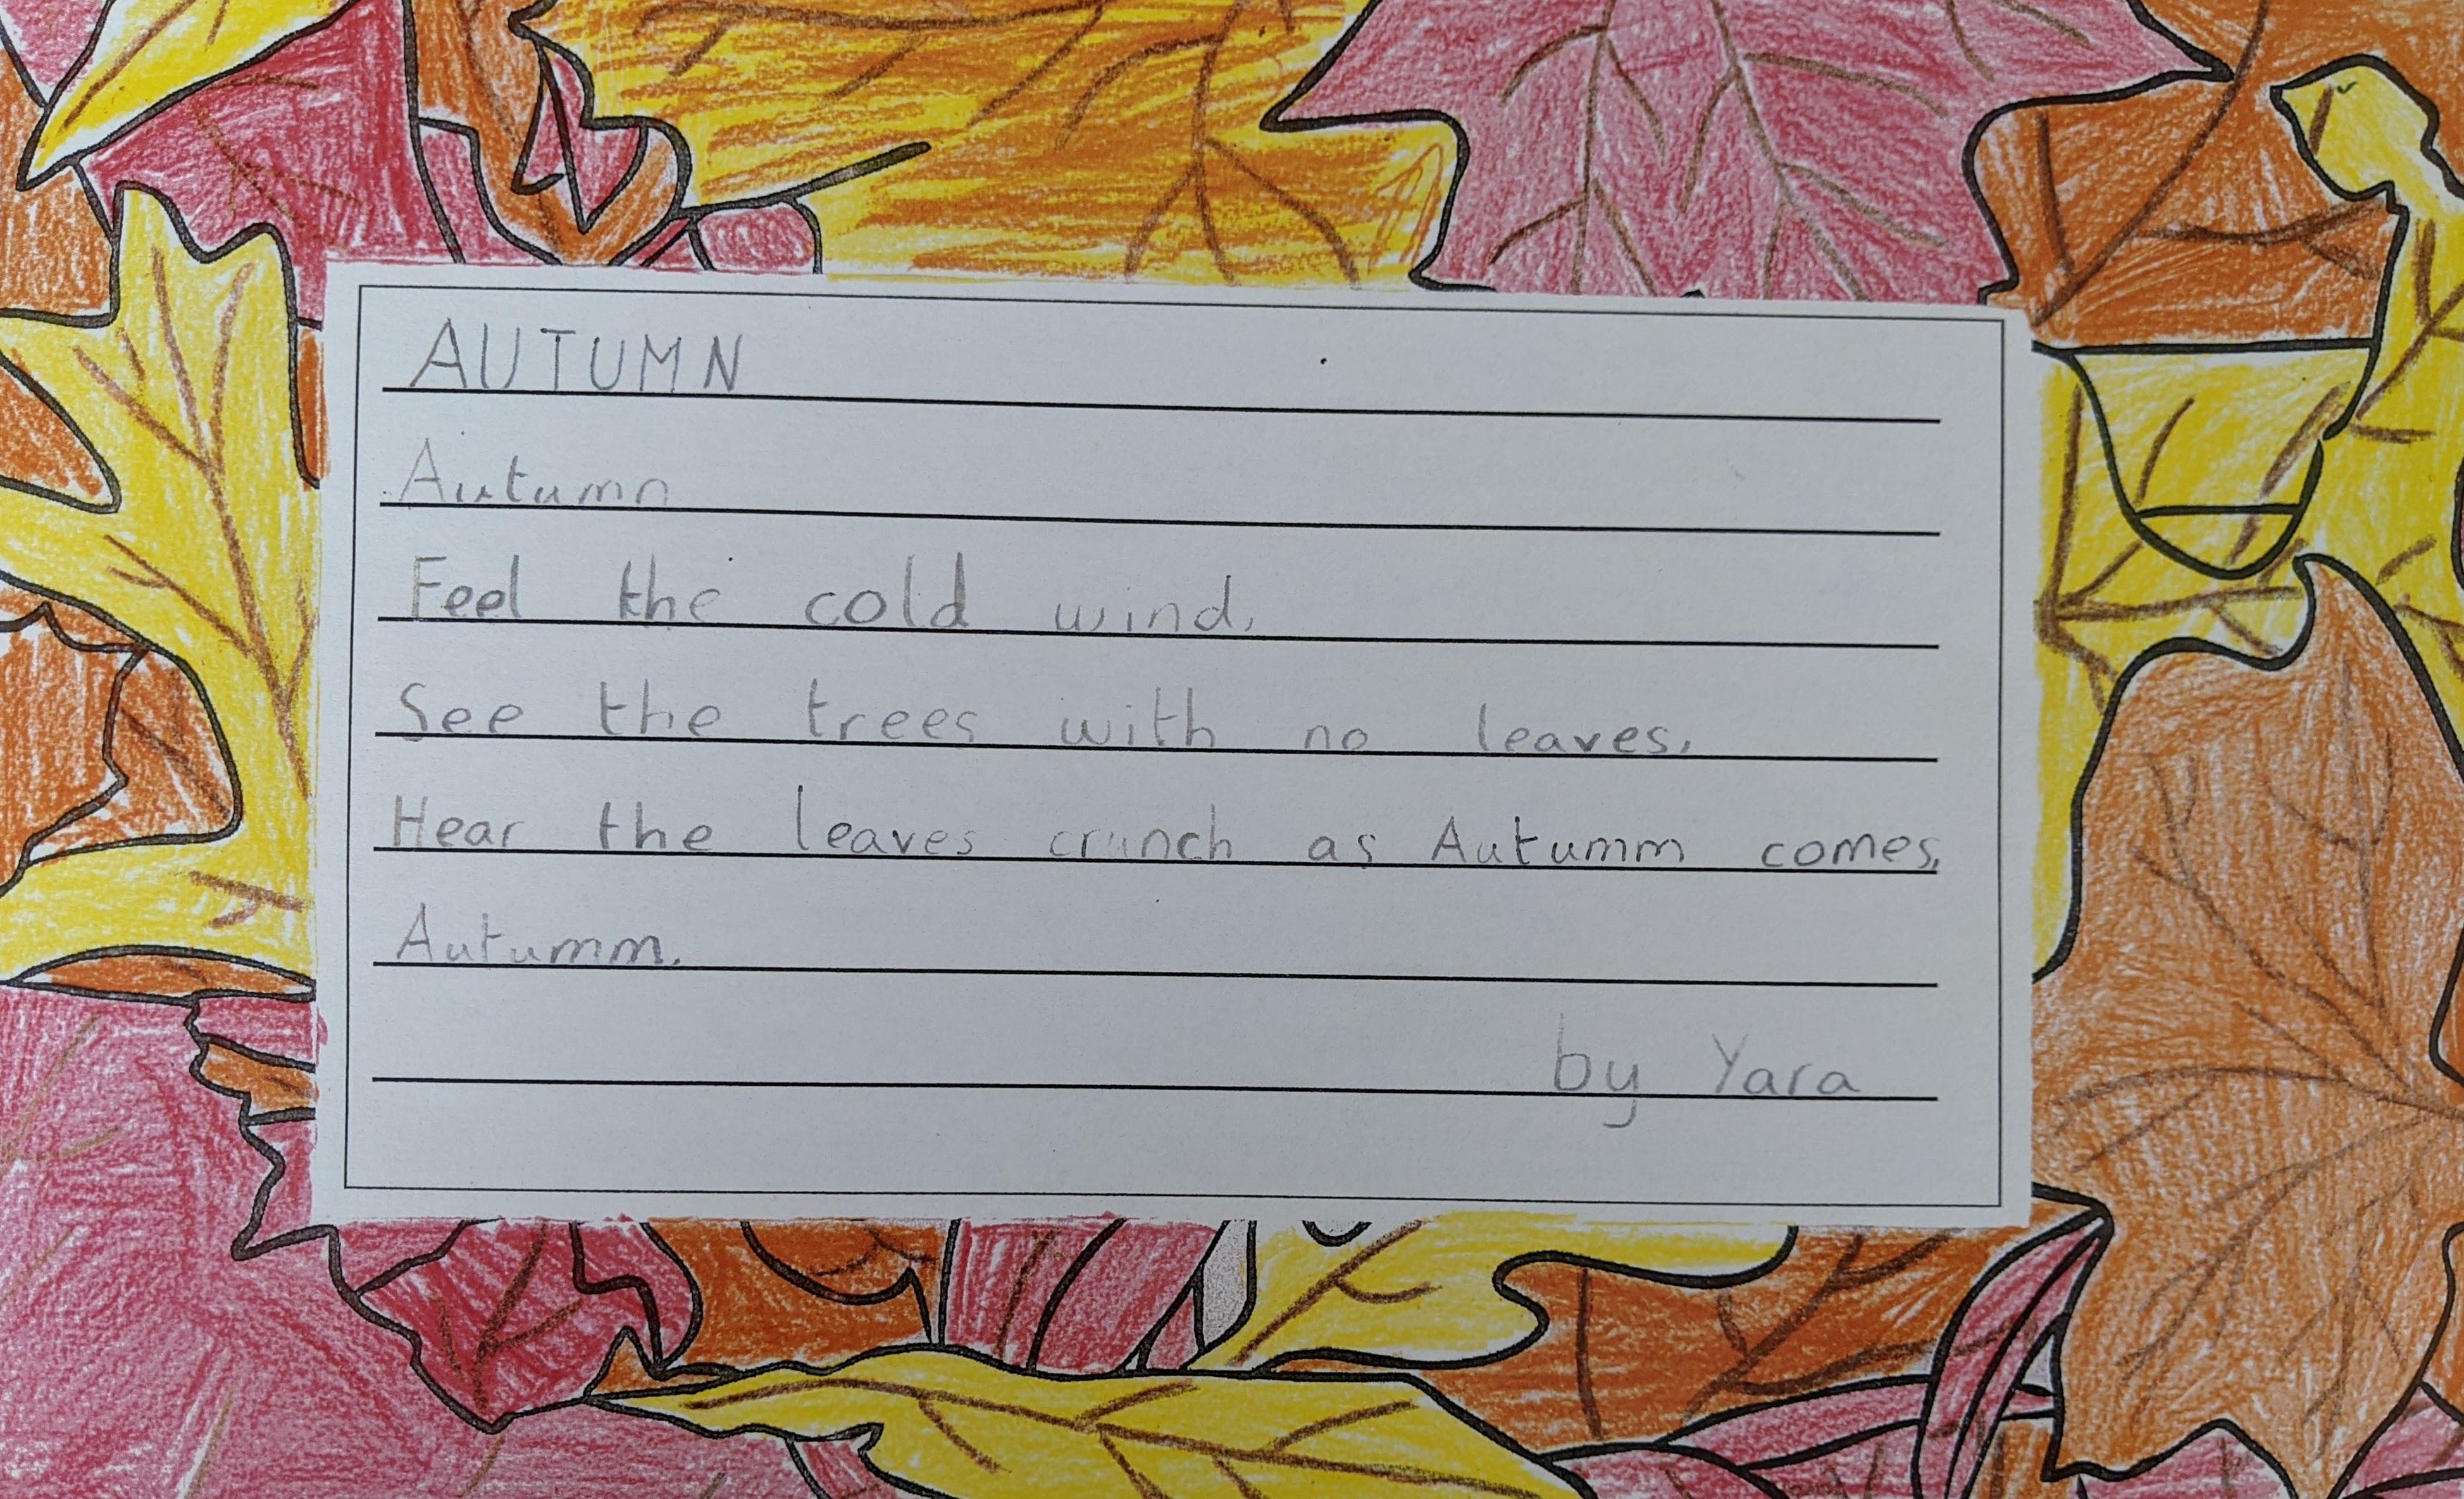 AUTUMN
Autumn
Feel the cold wind.
See the trees with no leaves.
Hear the leaves crunch as Autumm comes.
Autumm.
by Yara